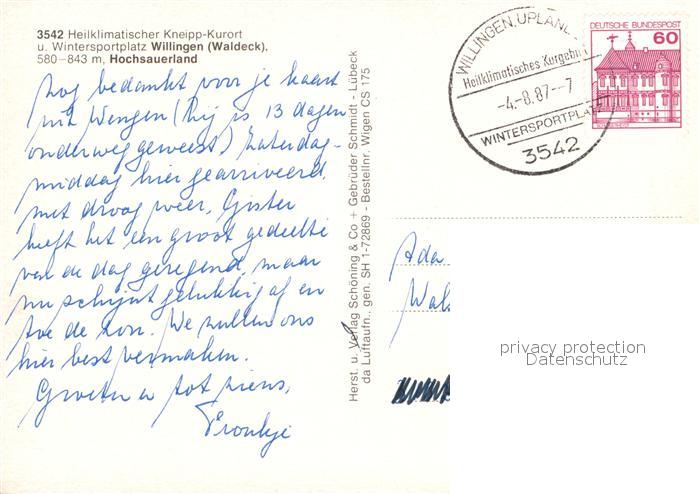 3542 Heilklimatischer Kneipp-Kurort
u. Wintersportplatz Willingen (Waldeck),
580–843 m, Hochsauerland
Nog bedankt voor je kaart
uit Wengen (hij is 13 dagen
onderweg geweest) Zaterdag-
middag hier gearriveerd
met droog weer, Gister
heeft het een groot gedeelte
van de dag geregend, maar
nu schijnt gelukkig af en
toe de zon. We zullen ons
hier best vermaken.
Groeten en tot ziens,
Froukje
Herst. u. Verlag Schöning & Co + Gebrüder Schmidt - Lübeck
da Luftaufn., gen. SH 1-72869 - Bestellnr. Wigen CS 175
WILLINGEN, UPLAND
Heilklimatisches Kurgebiet
-4.-8.87--7
WINTERSPORTPLATZ
3542
DEUTSCHE BUNDESPOST
60
Ada
Wal
privacy protection
Datenschutz